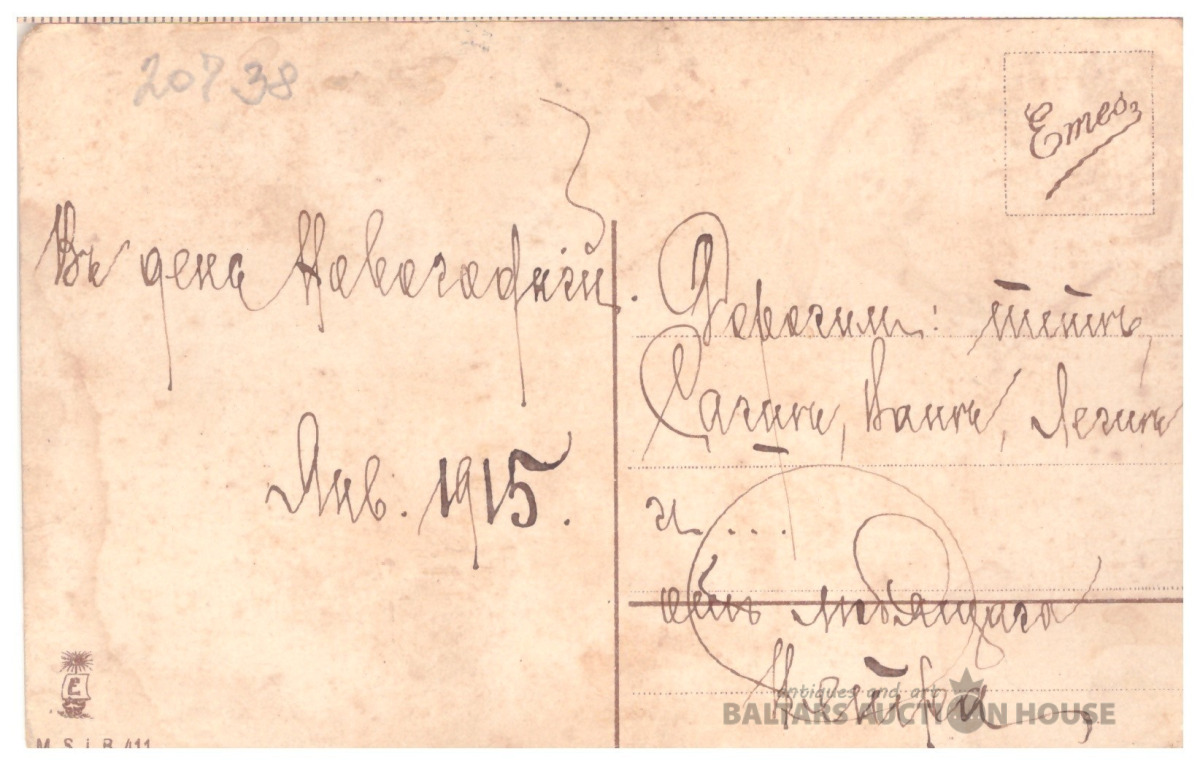 20738
Emes
Въ день Новогодній.
Янв. 1915.
Дорогим: тетѣ,
Ванѣ,
и ....
отъ любящаго
E
M. S. i. B. 411
antiques and art
BALTARS AUCTION HOUSE